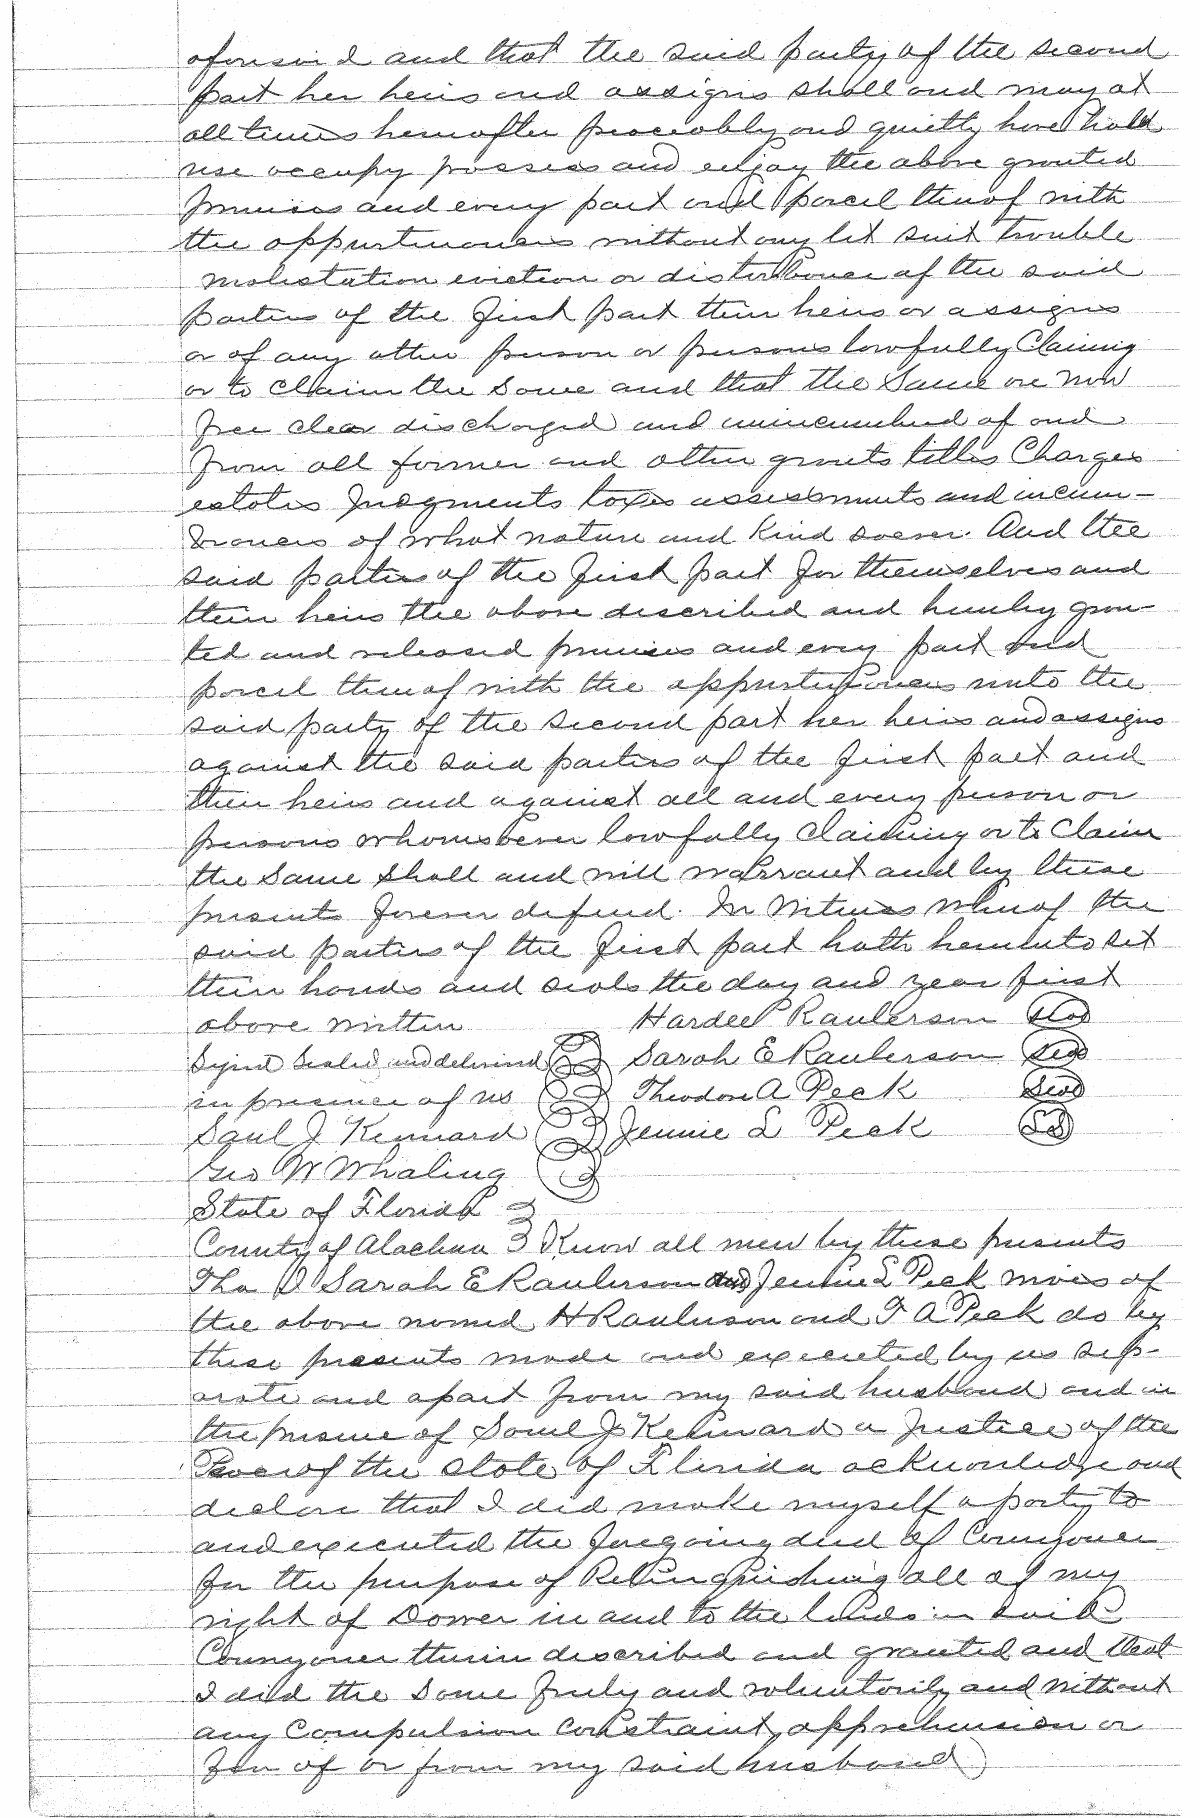 aforesaid and that the said party of the second
part her heirs and assigns shall and may at
all times hereafter peaceably and quietly have hold
use occupy possess and enjoy the above granted
premises and every part and parcel thereof with
the appurtenances without any let suit trouble
molestation eviction or disturbance of the said
parties of the first part their heirs or assigns
or of any other person or persons lawfully Claiming
or to Claim the same and that the same are now
free clear discharged and unincumbered of and
from all former and other grants titles Charges
estates Judgments taxes assessments and incum-
brances of what nature and Kind soever. And the
said parties of the first part for themselves and
their heirs the above described and hereby gran-
ted and released premises and every part and
parcel thereof with the appurtenances unto the
said party of the second part her heirs and assigns
against the said parties of the first part and
their heirs and against all and every person or
persons whomsoever lawfully claiming or to Claim
the same shall and will warrant and by these
presents forever defend. In Witness Whereof the
said parties of the first part hath hereunto set
their hands and seals the day and year first
above written Hardee Raulerson Seal
Signed Sealed and delivered Sarah E Raulerson Seal
in presence of us Theodore A Peck Seal
Saul J Kennard Jennie L Peck LS
Geo W Whaling
State of Florida
County of Alachua Know all men by these presents
Tha I Sarah E Raulerson and Jennie L Peck wives of
the above named H Raulerson and T A Peck do by
these presents made and executed by us sep-
arate and apart from my said husband and in
the presence of Saml J Kennard a Justice of the
Peace of the State of Florida acknowledge and
declare that I did make myself a party to
and executed the foregoing deed of Conveyance
for the purpose of Relinquishing all of my
right of Dower in and to the lands in said
Conveyance therein described and granted and that
I did the same freely and voluntarily and without
any Compulsion constraint apprehension or
fear of or from my said husband